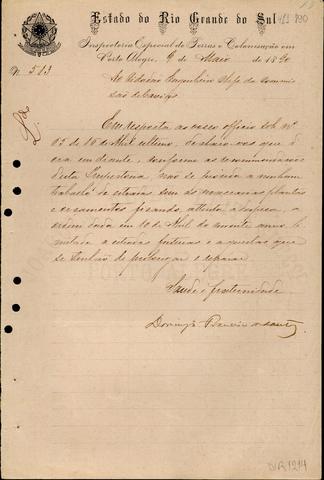 Estado do Rio Grande do Sul
Inspectoria Especial de Terras e Colonisação em
Porto Alegre, 9 de Maio de 1890
Nº 513
Ao Cidadão Engenheiro Chefe da Commis
são de
Em resposta ao vosso officio sob nº
65 de 16 de Abril ultimo, declaro-vos que d'o
ora em deante, conforme as
desta Inspectoria não se a nenhum
trabalho de estradas sem as plantas
e orçamentos ficando attenta a despesa, a
ordem dada em 10 de Abril do corrente anno, li
mitada a estradas futuras e aquellas que
se tenhão de prolongar e reparar
Saude e fraternidade
DIR1214